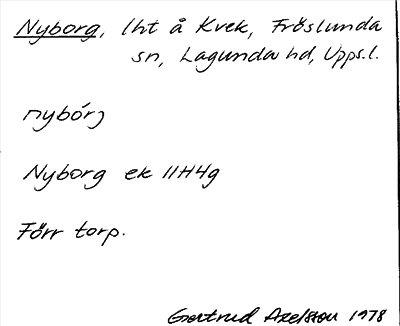 Nyborg, lht å Kvek, Fröslunda
sn, Lagunda hd, Upps.l.
nybórj
Nyborg ek 11H4g
Förr torp.
Gertrud Axelsson 1978